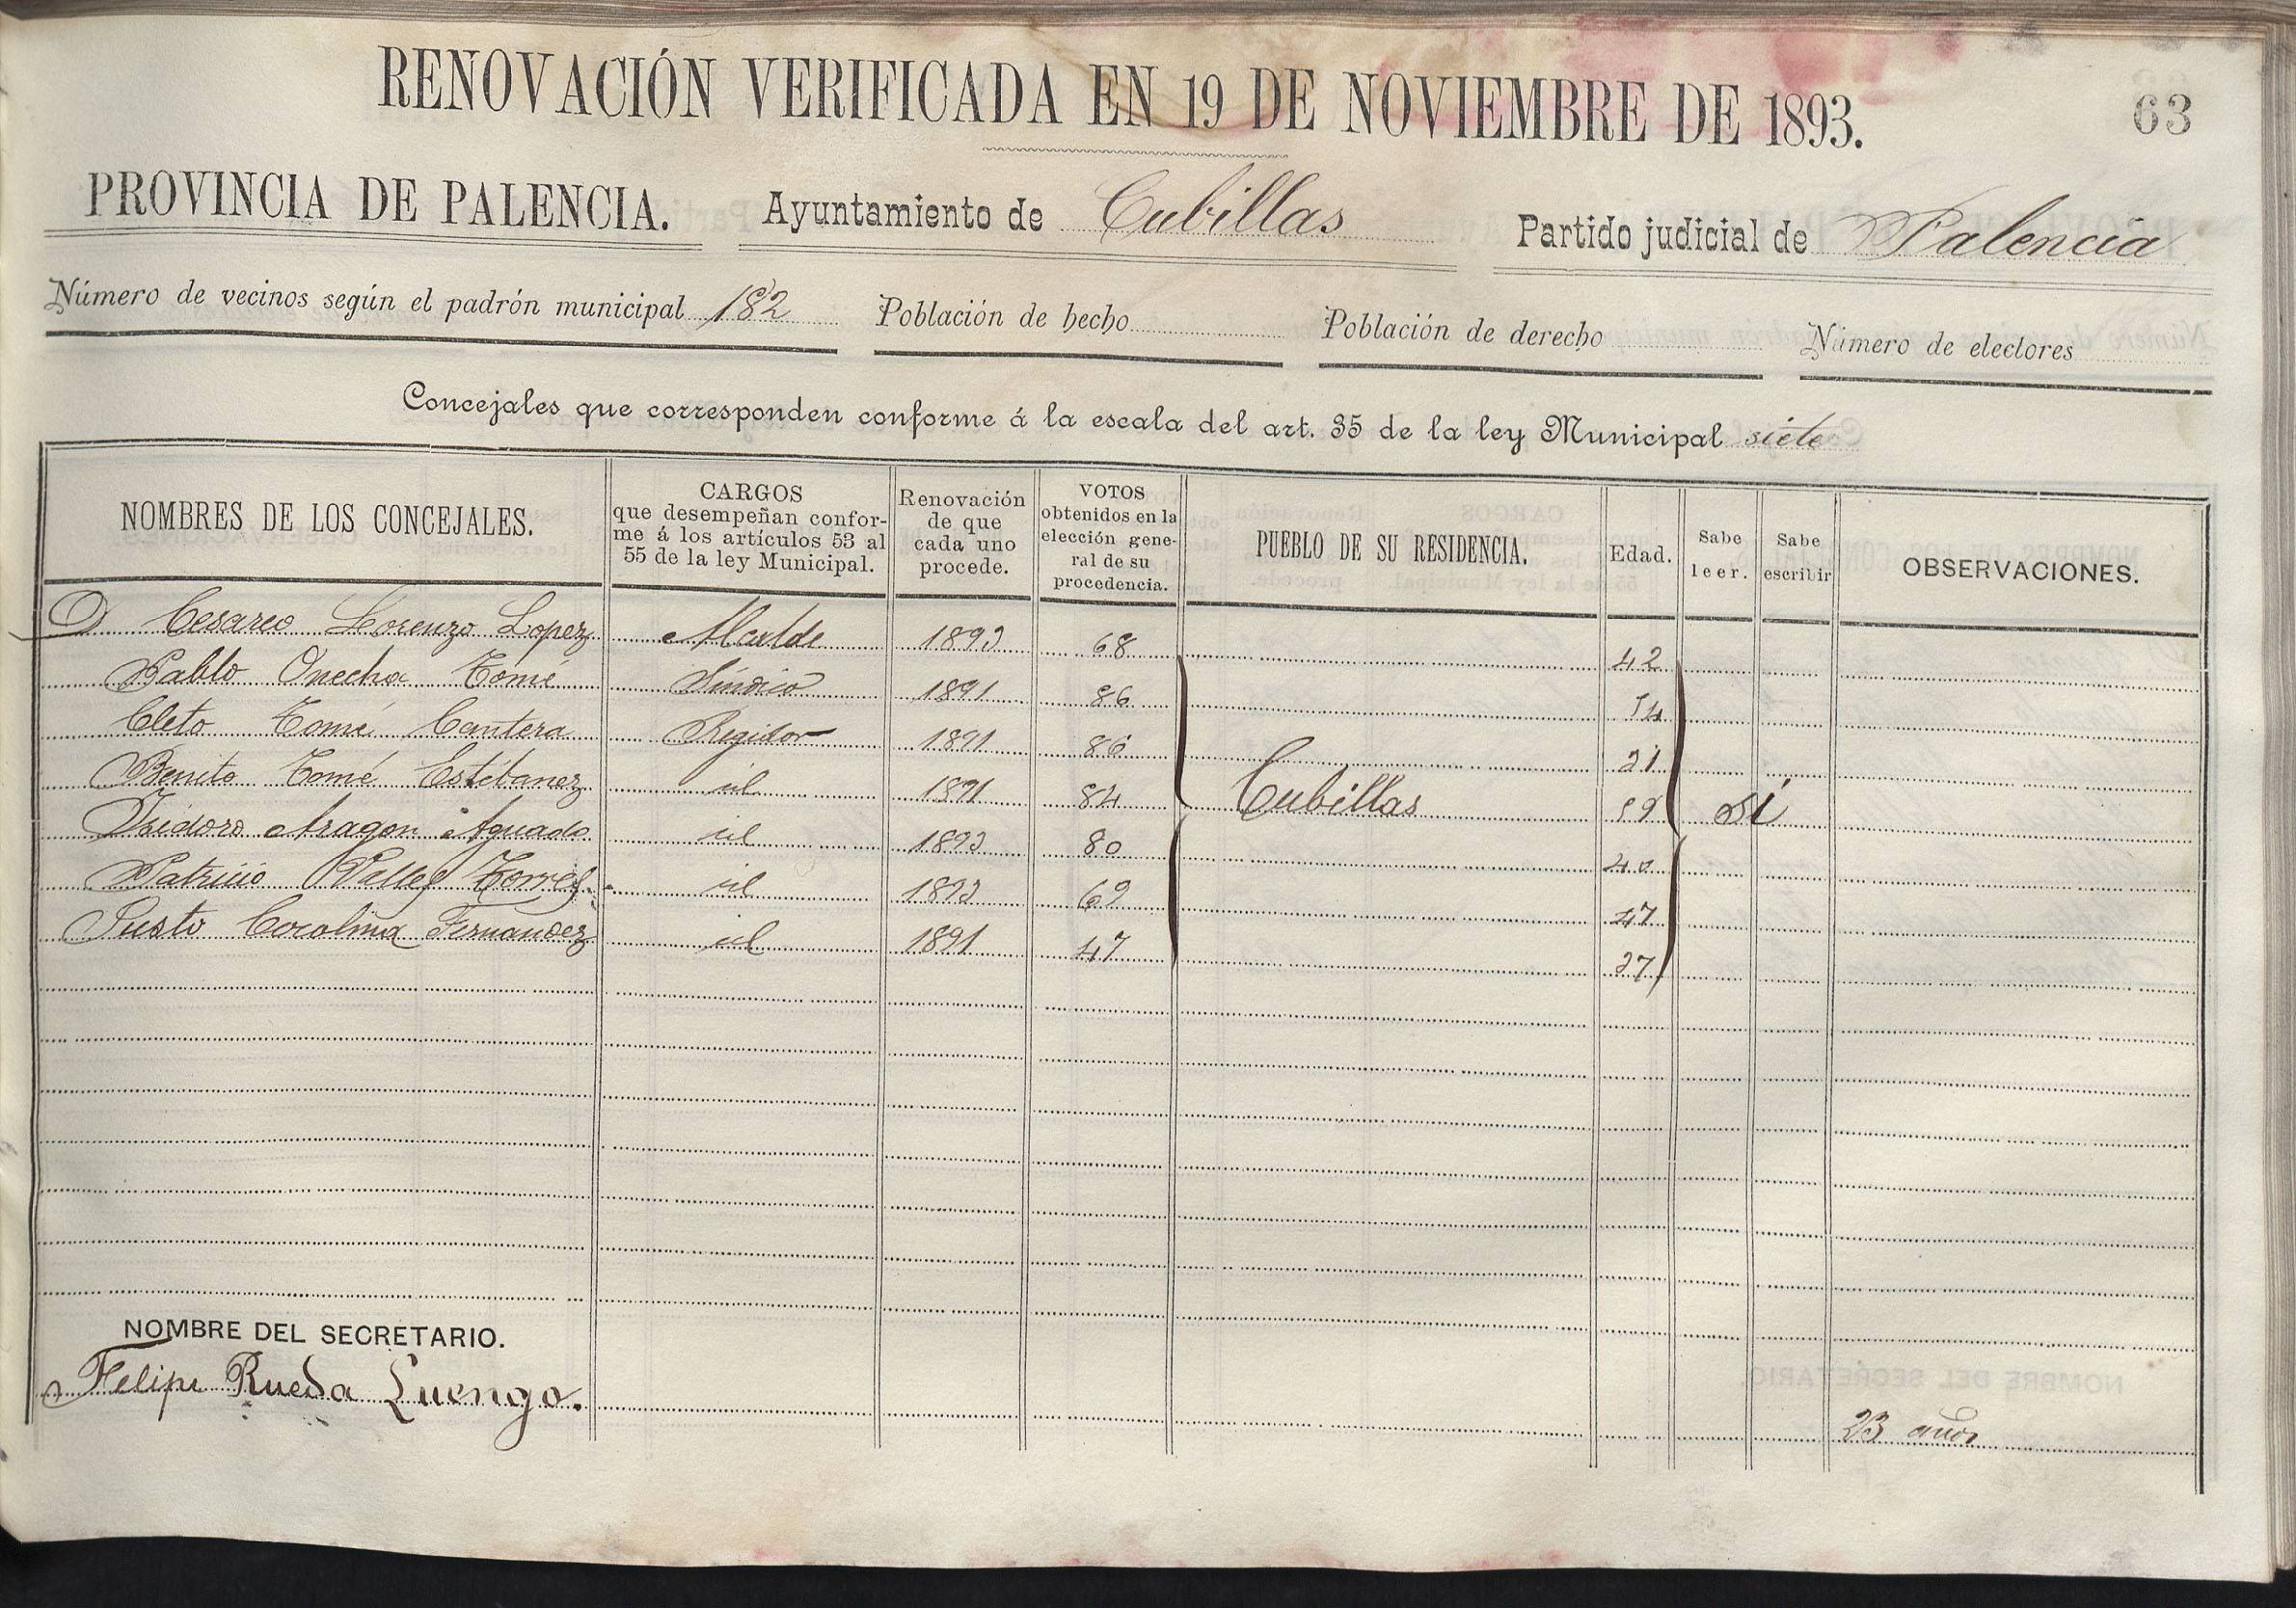 RENOVACIÓN VERIFICADA EN 19 DE NOVIEMBRE DE 1893.
63
PROVINCIA DE PALENCIA. Ayuntamiento de Cubillas Partido judicial de Palencia
Número de vecinos según el padrón municipal 182 Población de hecho Población de derecho Número de electores
Concejales que corresponden conforme á la escala del art. 35 de la ley Municipal siete
NOMBRES DE LOS CONCEJALES.
CARGOS
que desempeñan confor-
me á los artículos 53 al
55 de la ley Municipal.
Renovación
de que
cada uno
procede.
VOTOS
obtenidos en la
elección gene-
ral de su
procedencia.
PUEBLO DE SU RESIDENCIA.
Edad.
Sabe
leer.
Sabe
escribir
OBSERVACIONES.
D Cesareo Lorenzo Lopez Alcalde 1893 68 42
Pablo Onecha Tomé Síndico 1891 86 54
Cleto Tomé Cantera Regidor 1891 86
Benito Tomé Estébanez id 1891 84 Cubillas 59 Si
Isidoro Aragon Aguado id 1893 80 40
Patricio Valles Torres. id 1893 69 47
Justo Fernandez id 1891 47
NOMBRE DEL SECRETARIO.
Felipe Rueda Luengo. 23 años